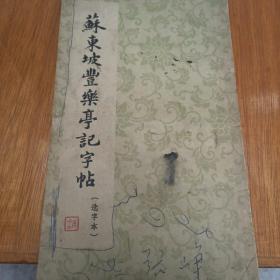 蘇東坡豐樂亭記字帖
(选字本)